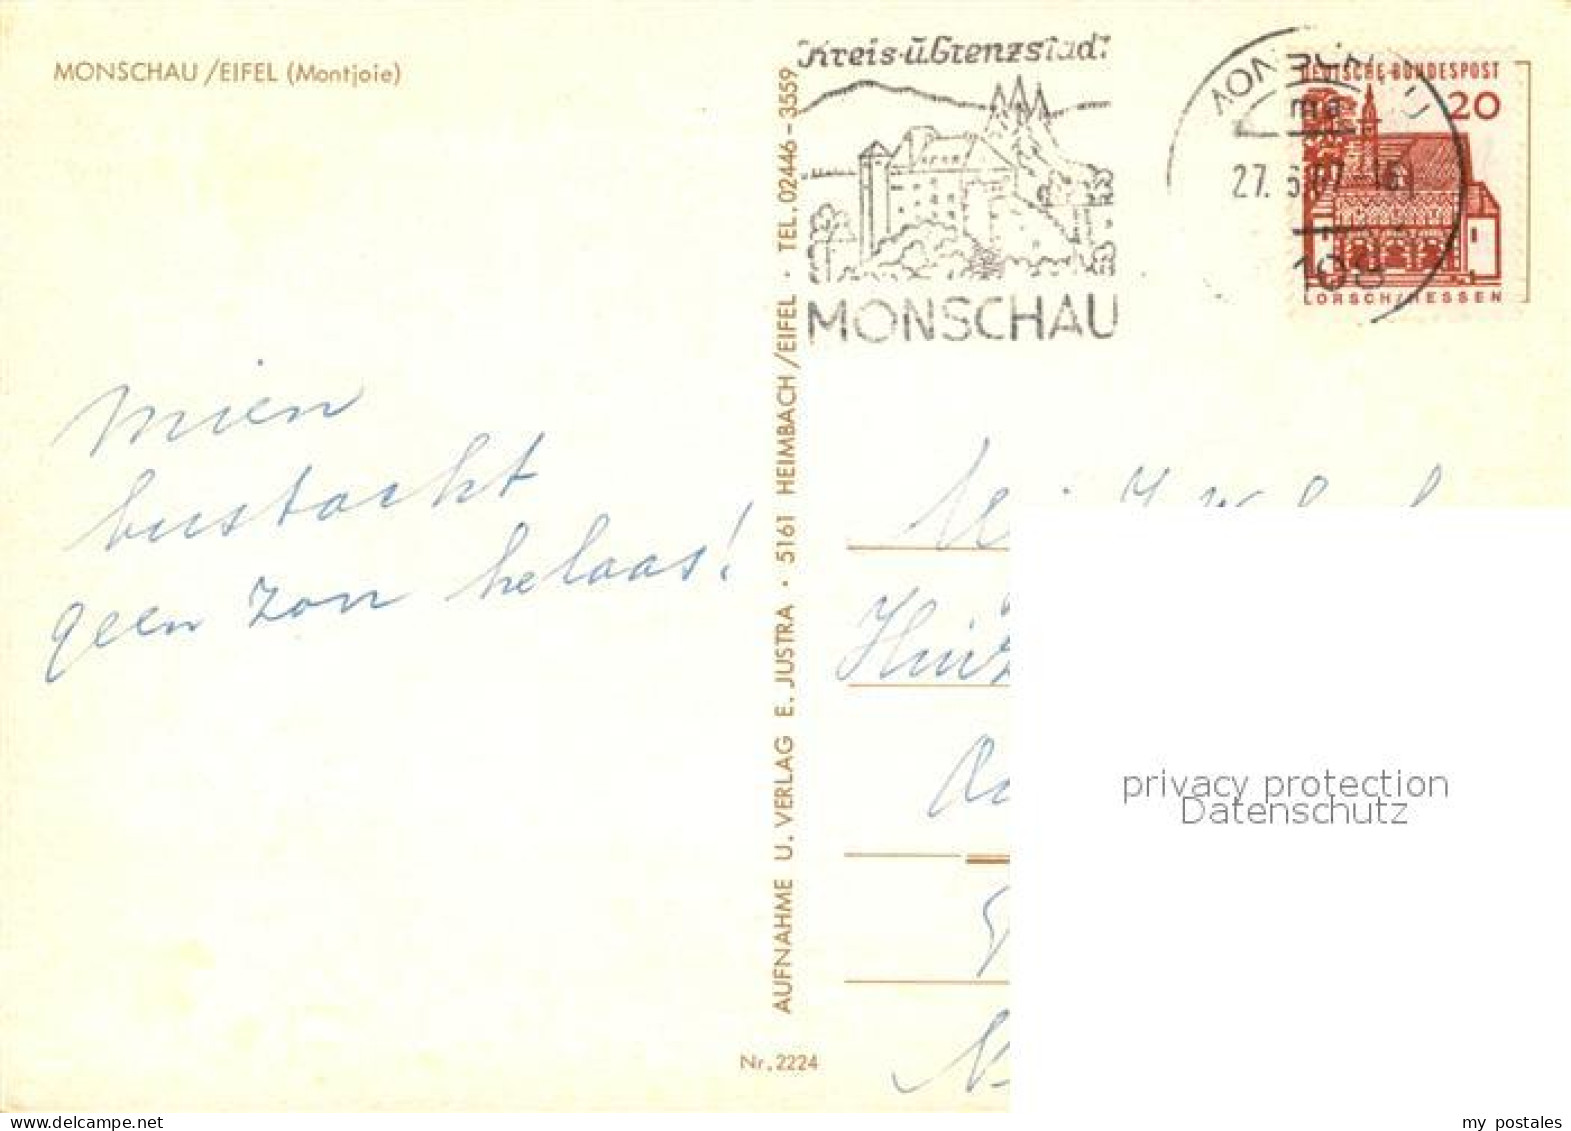 MONSCHAU /EIFEL (Montjoie)
Kreis- u. Grenzstadt
MONSCHAU
DEUTSCHE BUNDESPOST
20
LORSCH/HESSEN
ma
27.6.67-16
108
mien
bustocht
geen zon helaas!
AUFNAHME U. VERLAG E. JUSTRA · 5161 HEIMBACH/EIFEL · TEL. 02446-3559
Nr. 2224
privacy protection
Datenschutz
my postales